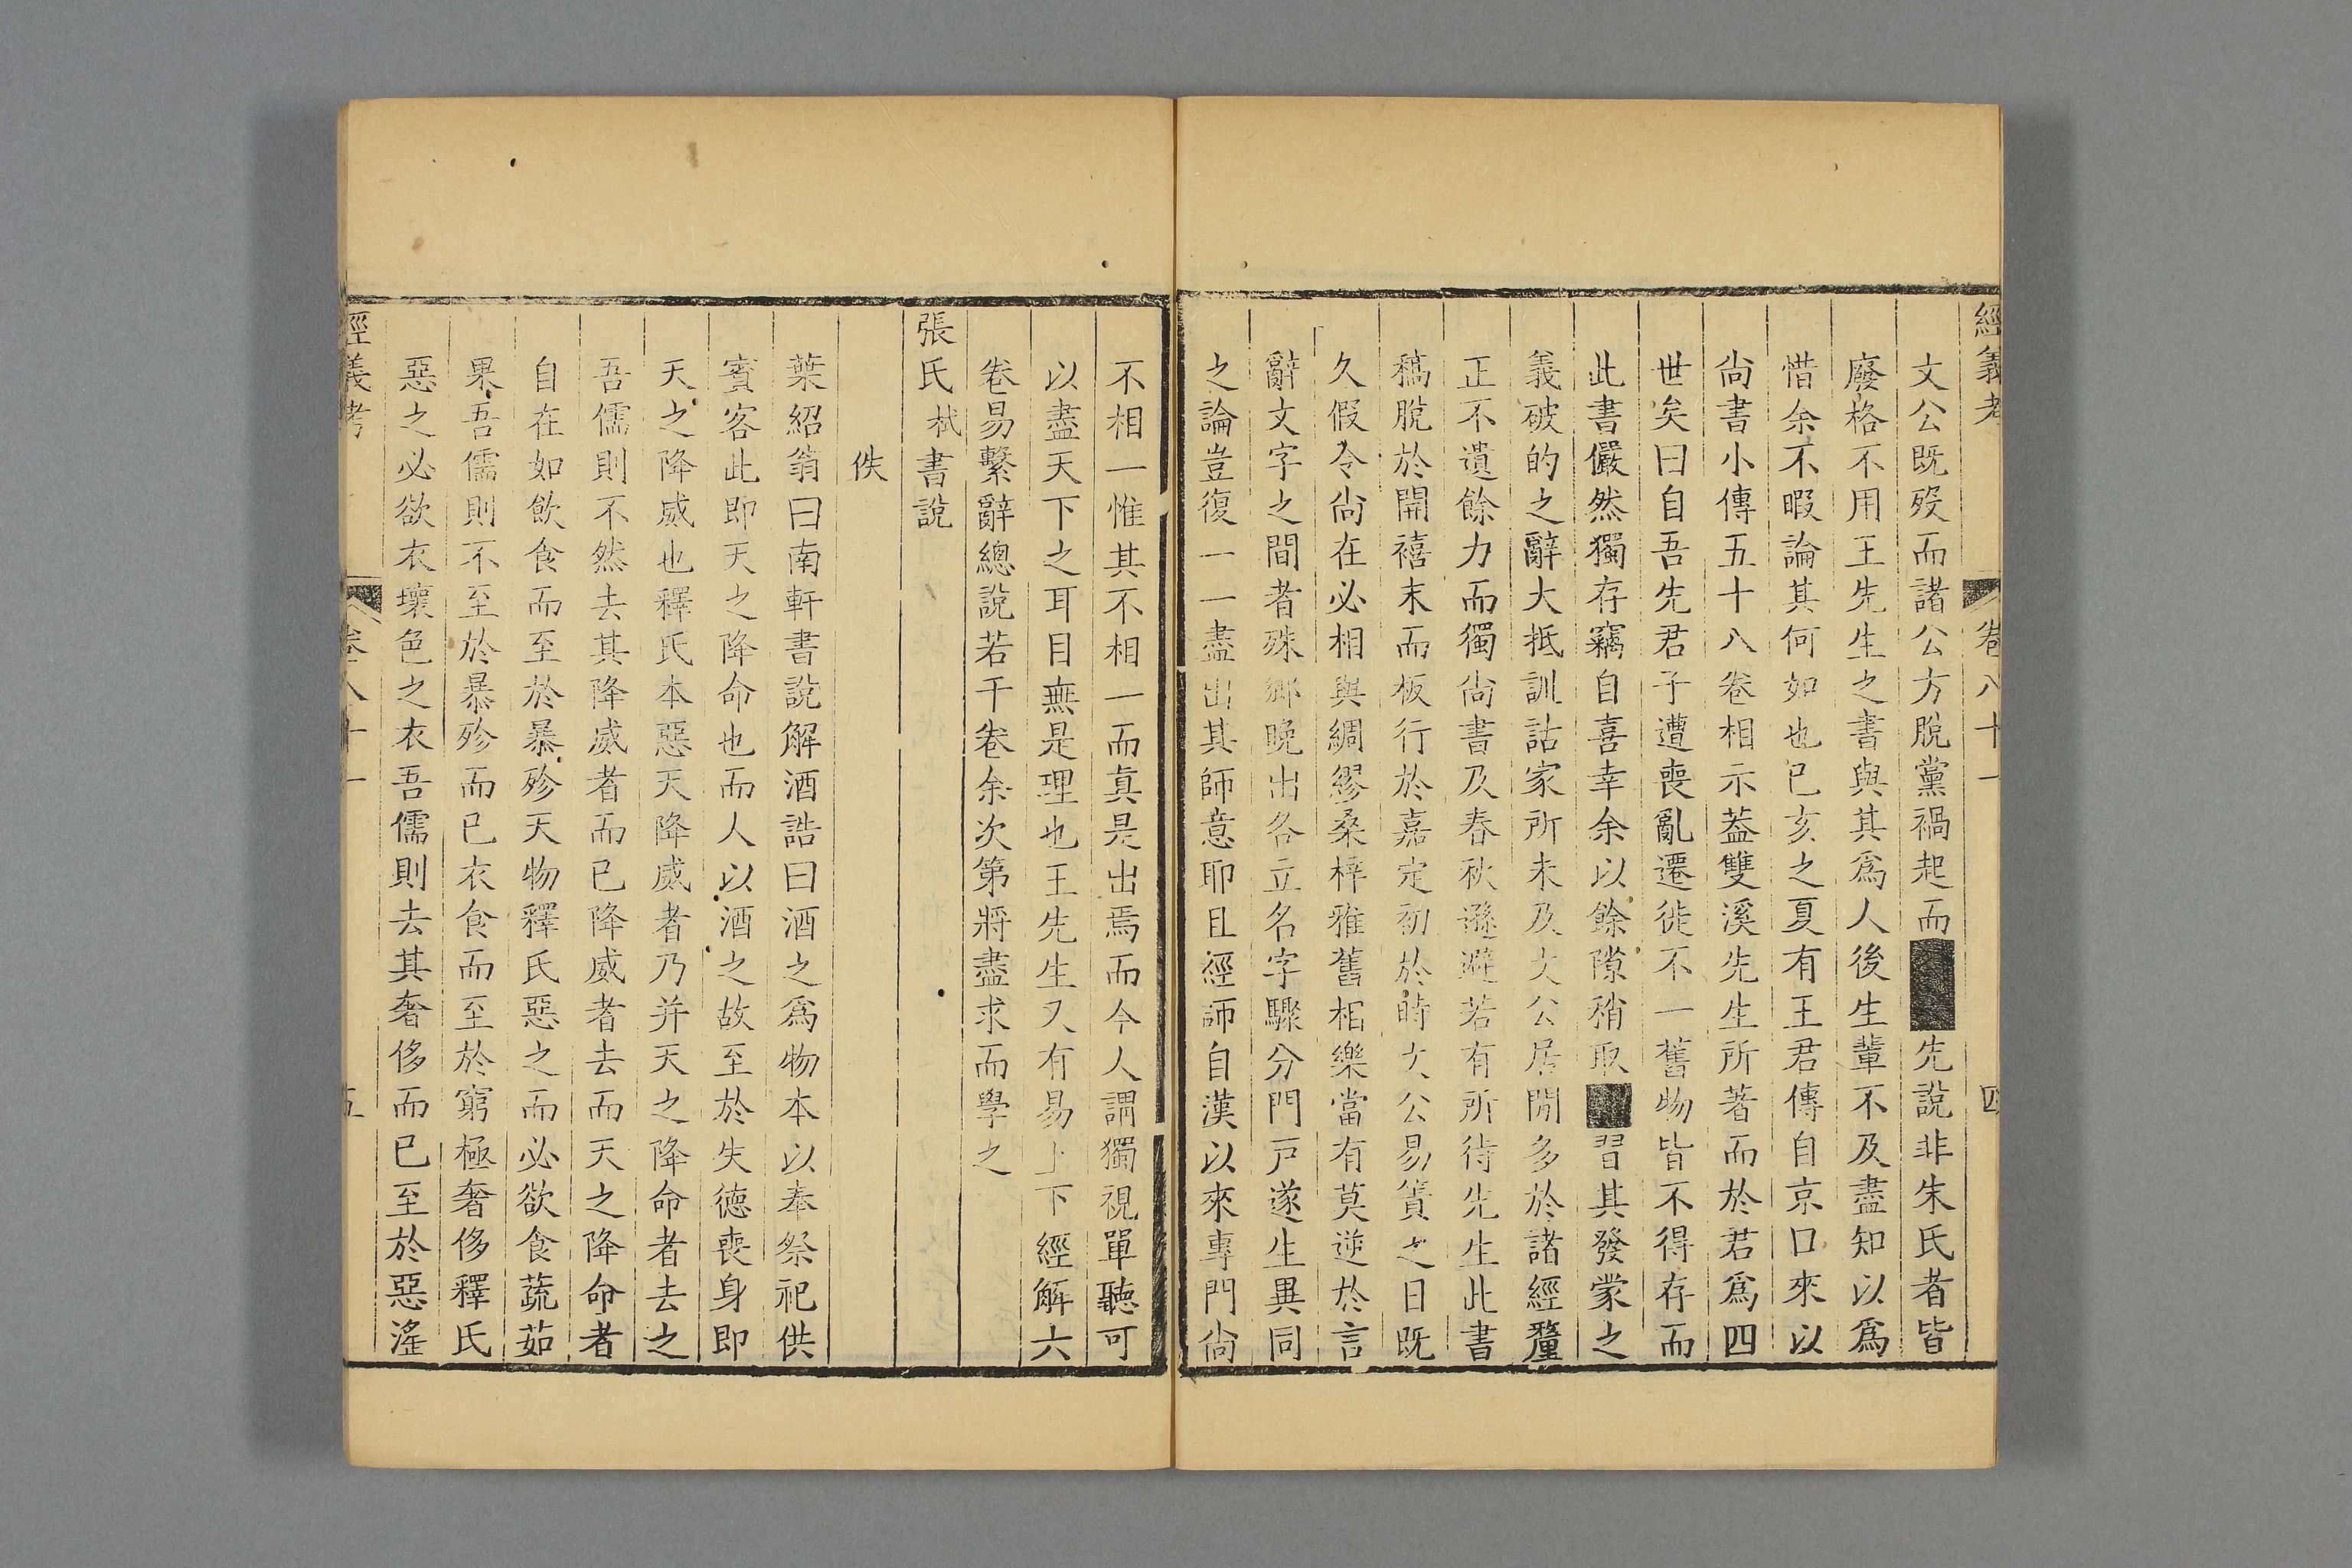 經義考 卷八十一 四
文公既歿而諸公方脫黨禍起而先說非朱氏者皆
廢格不用王先生之書與其爲人後生輩不及盡知以爲
惜余不暇論其何如也已亥之夏有王君傳自京口來以
尚書小傳五十八卷相示葢雙溪先生所著而於君爲四
世矣曰自吾先君子遭喪亂遷徙不一舊物皆不得存而
此書儼然獨存竊自喜幸余以餘隙稍取習其發蒙之
義破的之辭大抵訓詁家所未及文公居閒多於諸經釐
正不遺餘力而獨尚書及春秋遜避若有所待先生此書
稿脫於開禧末而板行於嘉定初於時文公易簀之日既
久假令尚在必相與綢繆桑梓雅舊相樂當有莫逆於言
辭文字之間者殊鄉晚出各立名字驟分門戸遂生異同
之論豈復一一盡出其師意耶且經師自漢以來專門尚
不相一惟其不相一而真是出焉而今人謂獨視單聽可
以盡天下之耳目無是理也王先生又有易上下經解六
卷易繫辭總說若干卷余次第將盡求而學之
張氏栻書說
佚
葉紹翁曰南軒書說解酒誥曰酒之爲物本以奉祭祀供
賓客此即天之降命也而人以酒之故至於失德喪身即
天之降威也釋氏本惡天降威者乃并天之降命者去之
吾儒則不然去其降威者而已降威者去而天之降命者
自在如飲食而至於暴殄天物釋氏惡之而必欲食蔬茹
果吾儒則不至於暴殄而已衣食而至於窮極奢侈釋氏
惡之必欲衣壞色之衣吾儒則去其奢侈而已至於惡滛
經義考 卷八十一 五